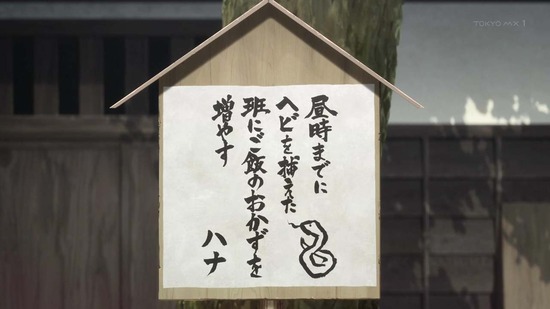 TOKYO MX 1
昼時までに
ヘビを捕えた
班にご飯のおかずを
増やす
ハナ